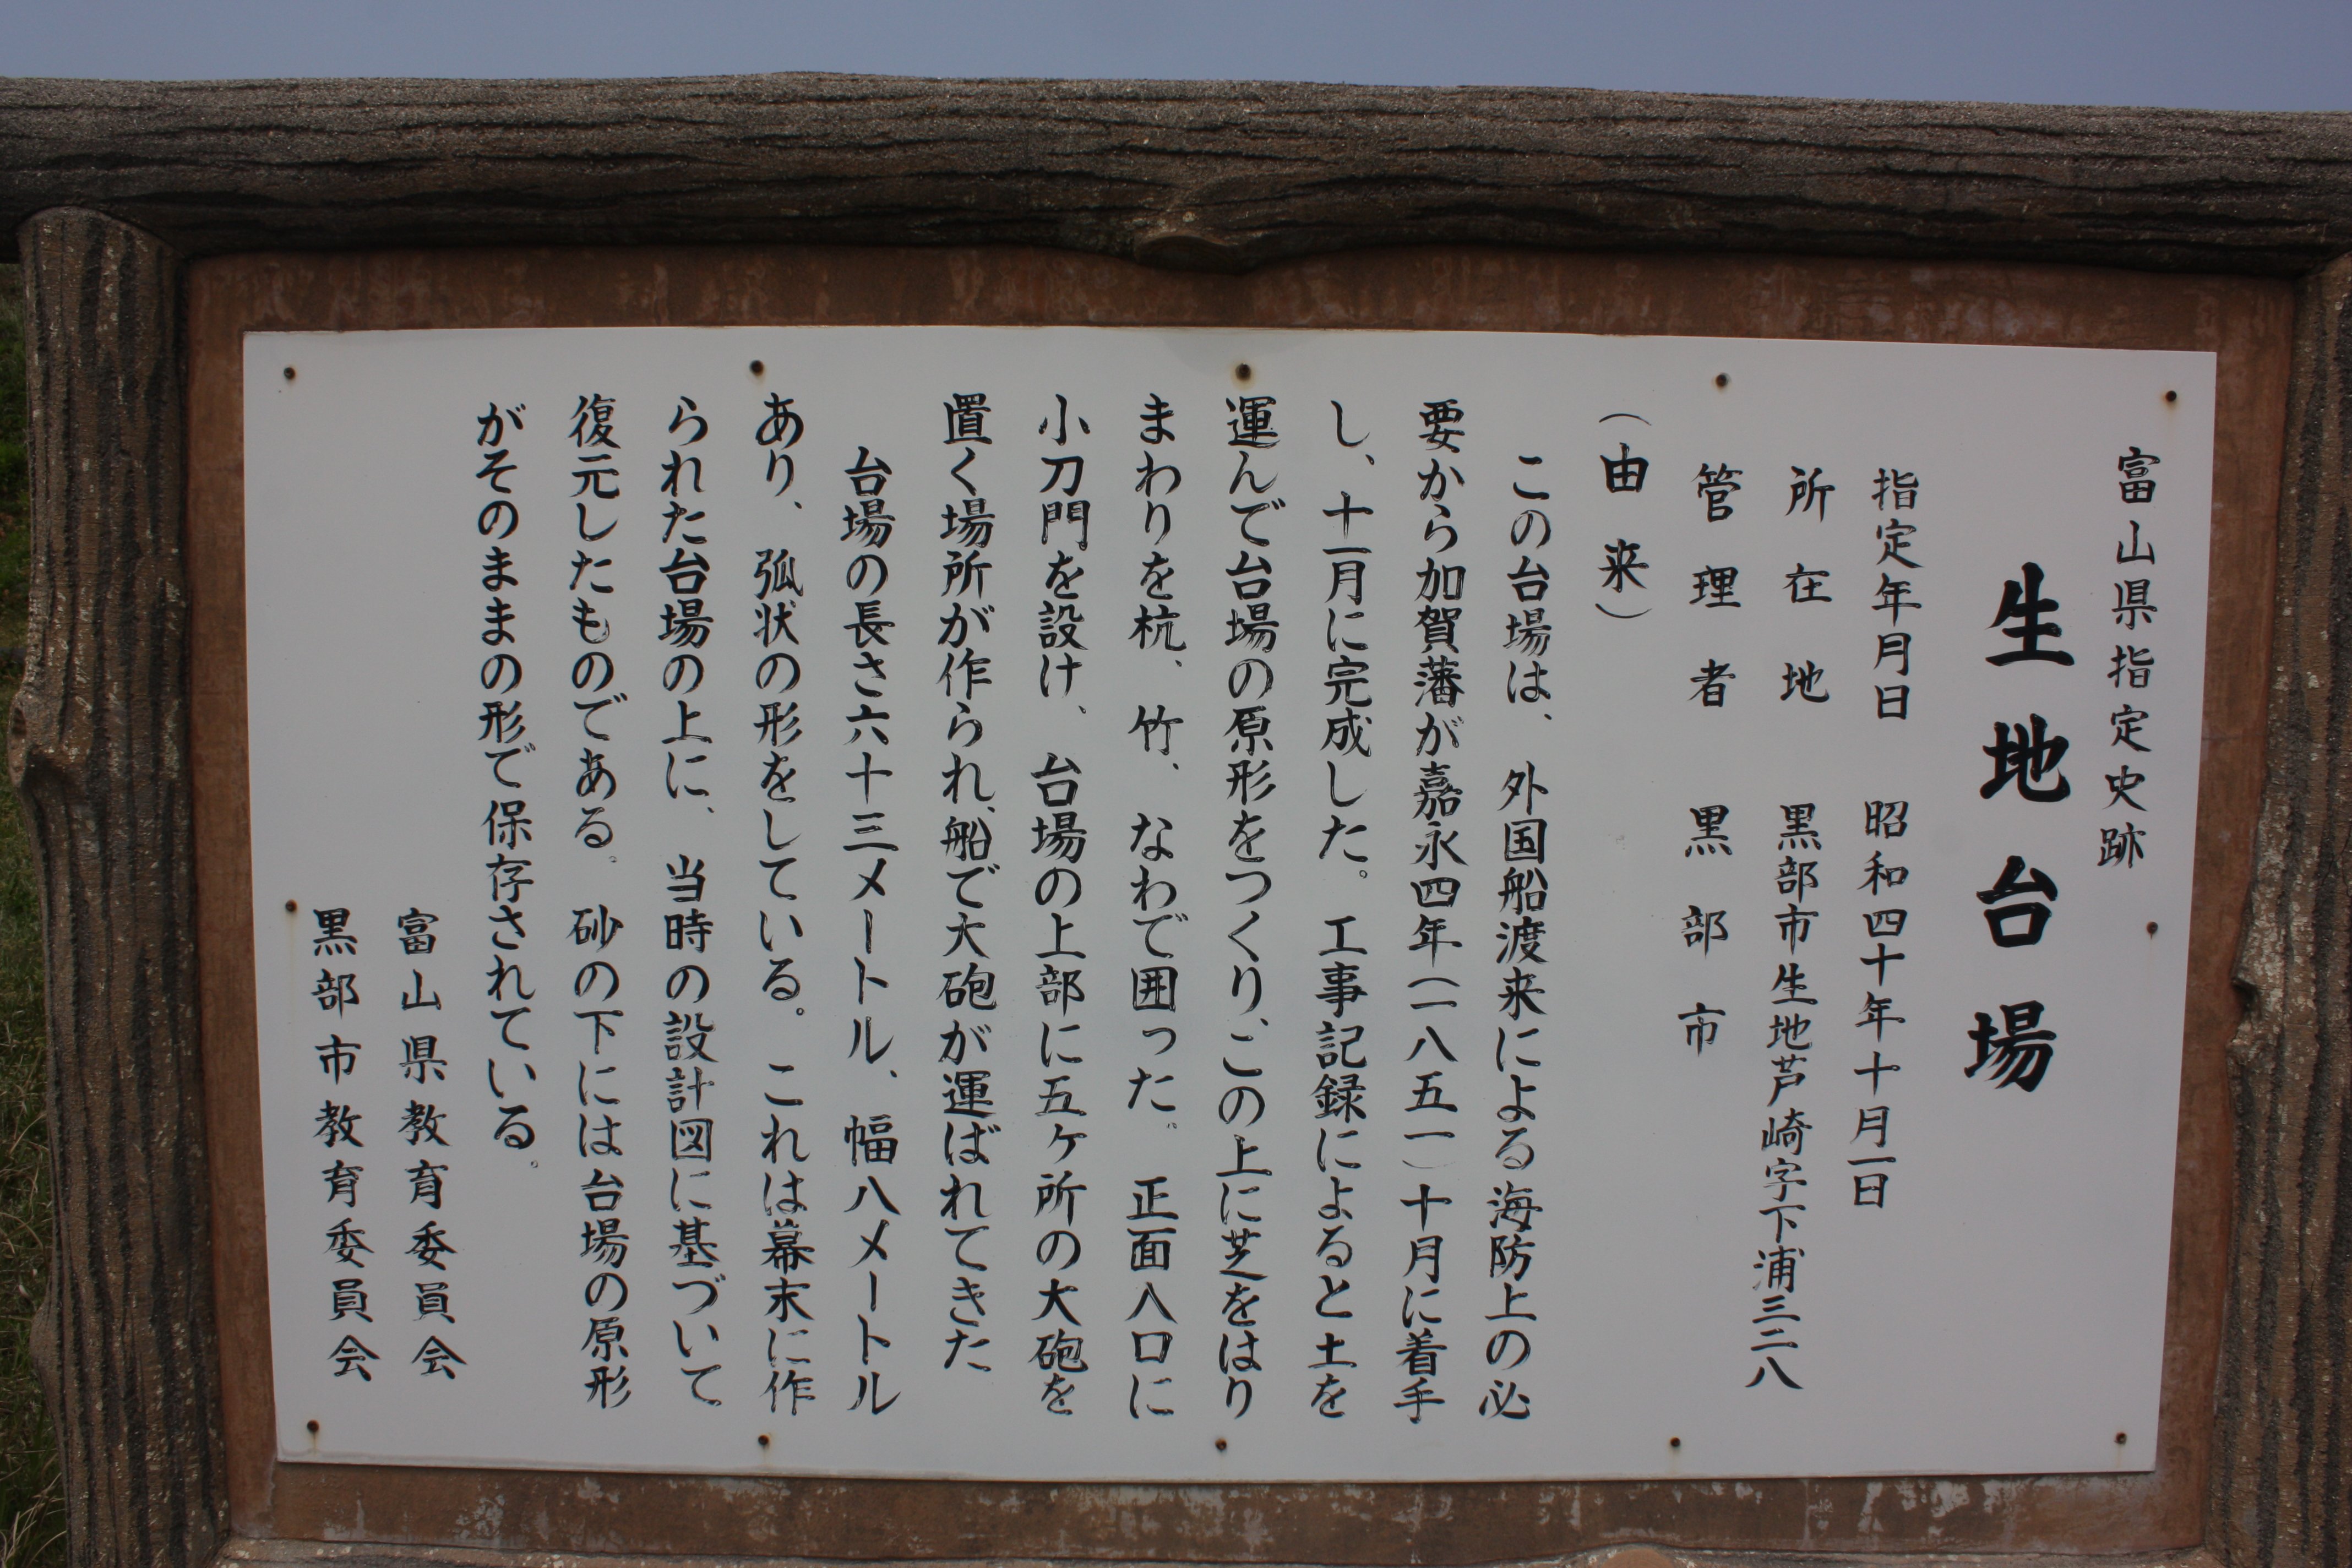 富山県指定史跡
生地台場
指定年月日　昭和四十年十月一日
所在地　黒部市生地芦崎字下浦三二八
管理者　黒部市
（由来）
この台場は、外国船渡来による海防上の必
要から加賀藩が嘉永四年（一八五一）十月に着手
し、十一月に完成した。工事記録によると土を
運んで台場の原形をつくり、この上に芝をはり
まわりを杭、竹、なわで囲った。正面入口に
小刀門を設け、台場の上部に五ケ所の大砲を
置く場所が作られ、船で大砲が運ばれてきた
台場の長さ六十三メートル、幅八メートル
あり、弧状の形をしている。これは幕末に作
られた台場の上に、当時の設計図に基づいて
復元したものである。砂の下には台場の原形
がそのままの形で保存されている。
富山県教育委員会
黒部市教育委員会